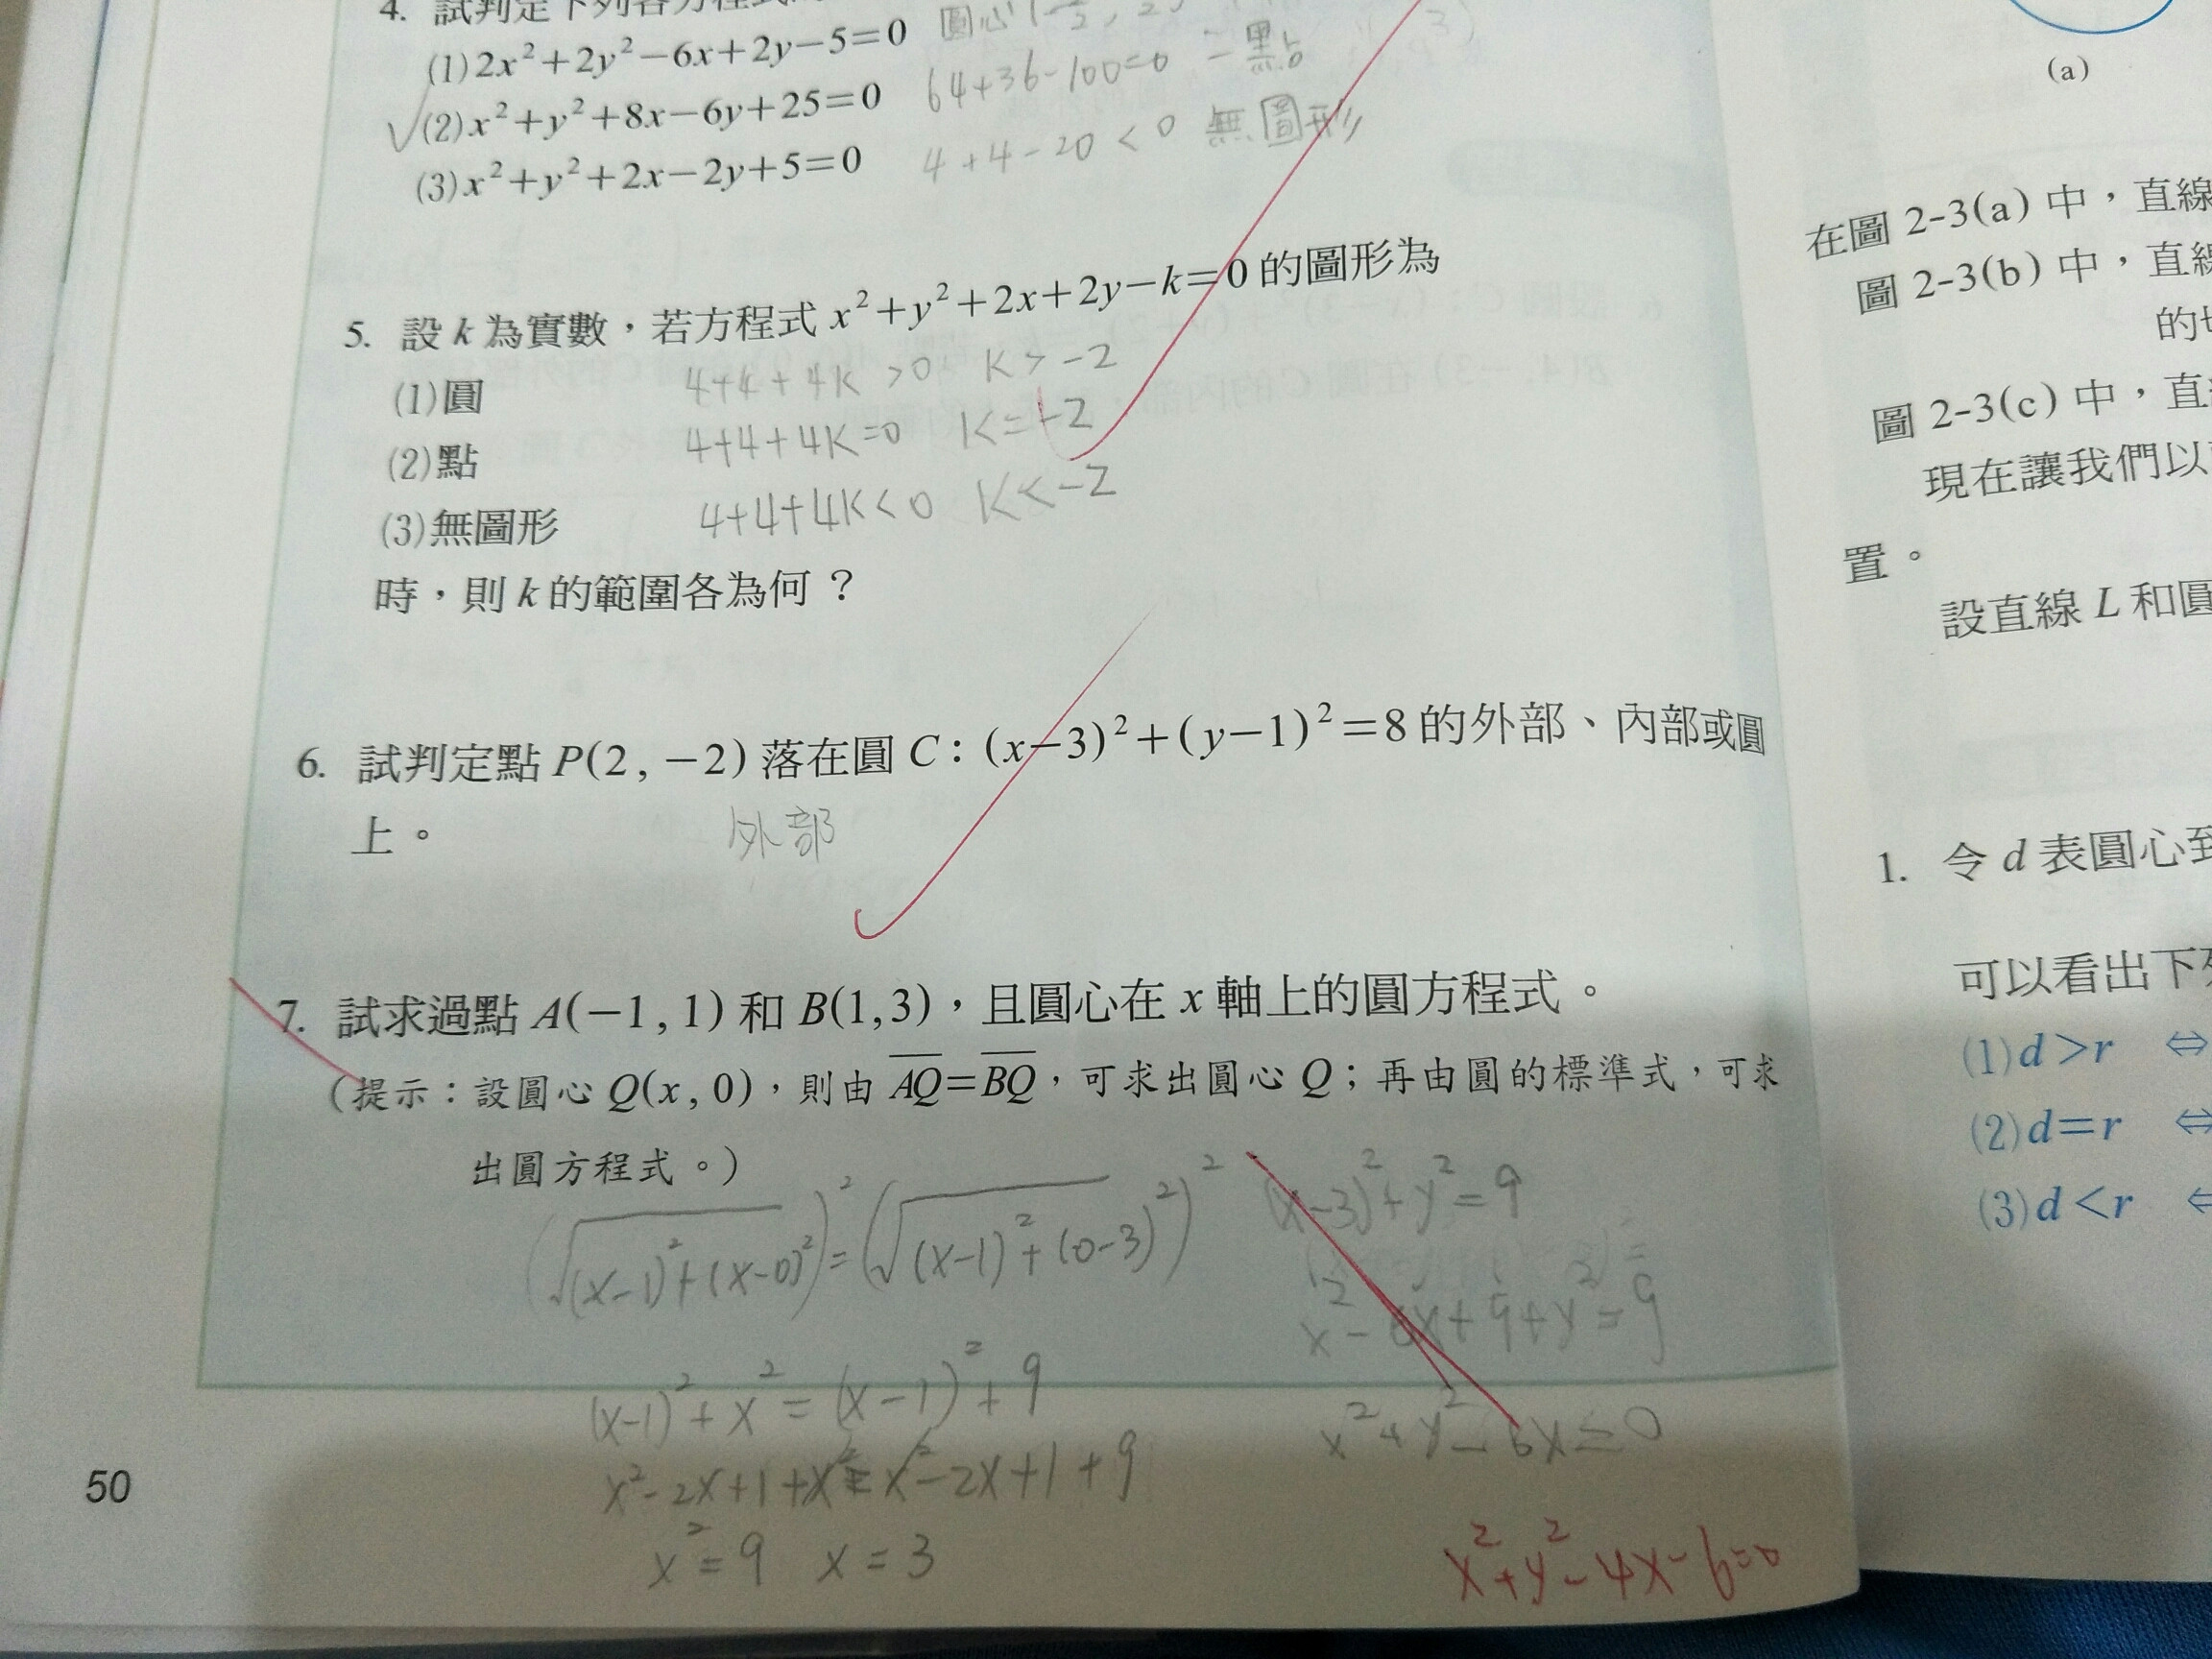 4. 試判定下列各方程式
(1)2x²+2y²−6x+2y−5=0 圓心
√(2)x²+y²+8x−6y+25=0 64+36-100=0 一點
(3)x²+y²+2x−2y+5=0 4+4-20<0 無圖形
5. 設k為實數,若方程式x²+y²+2x+2y−k=0的圖形為
(1)圓 4+4+4K>0 K>-2
(2)點 4+4+4K=0 K=-2
(3)無圖形 4+4+4K<0 K<-2
時,則k的範圍各為何?
6. 試判定點P(2,−2)落在圓C:(x−3)²+(y−1)²=8的外部、內部或圓
上。 外部
7. 試求過點A(−1,1)和B(1,3),且圓心在x軸上的圓方程式。
(提示:設圓心Q(x,0),則由AQ=BQ,可求出圓心Q;再由圓的標準式,可求
出圓方程式。)
(√(x-1)²+(x-0)²)²=(√(x-1)²+(0-3)²)² (x-3)²+y²=9
x²-6x+9+y²=9
(x-1)²+x²=(x-1)²+9
x²+y²-6x=0
x²-2x+1+x²=x²-2x+1+9
x²=9 x=3
x²+y²-4x-6=0
50
(a)
在圖2-3(a)中,直線
圖2-3(b)中,直線
圖2-3(c)中,直
現在讓我們以
置。
設直線L和圓
1. 令d表圓心到
可以看出下列
(1)d>r ⇔
(2)d=r ⇔
(3)d<r